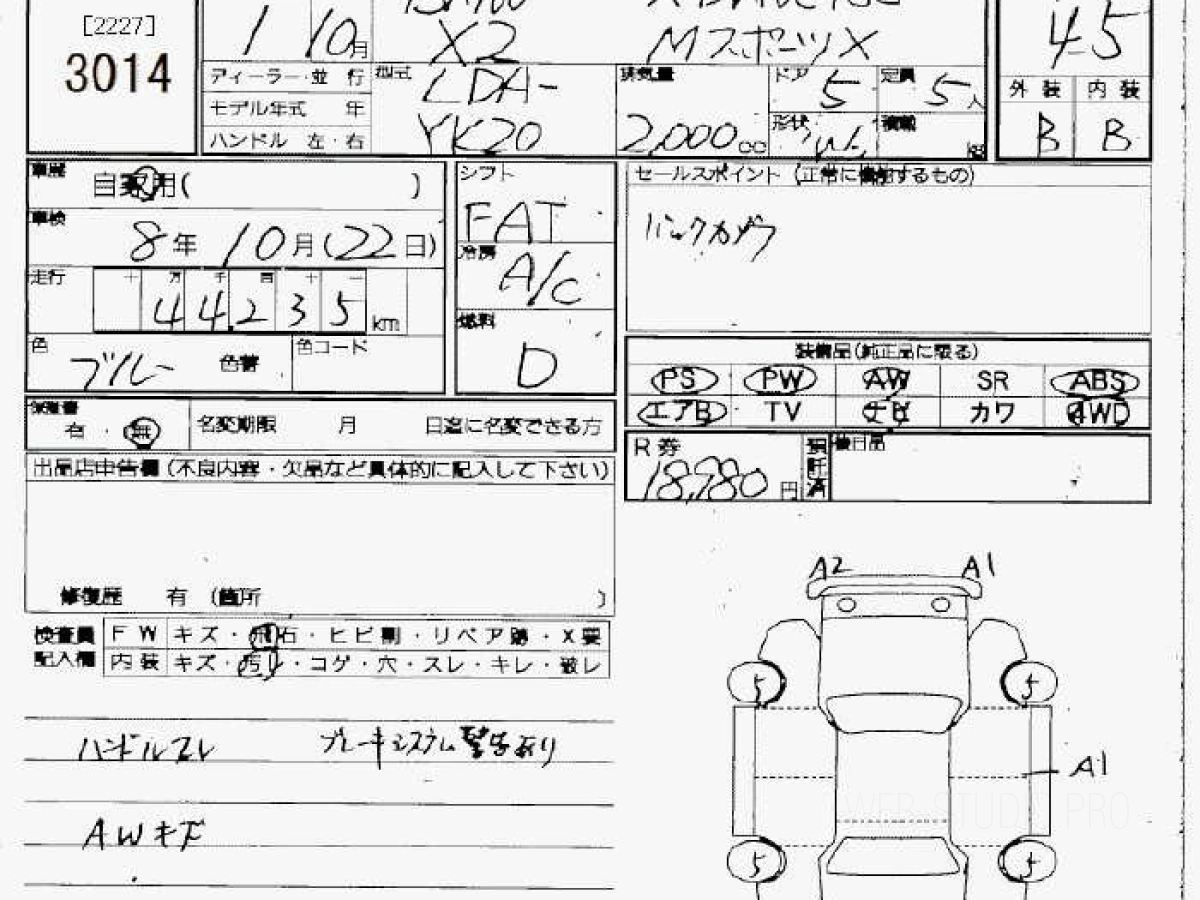 [2227]
3014
1 10月
X2 MスポーツX
4.5
ディーラー・並 行
モデル年式 年
ハンドル 左・右
型式 LDA-
YK20
排気量 2,000cc
ドア 5
定員 5人
形状
積載 kg
外装 内装
B B
車歴 自家用( )
車検 8年 10月(22日)
走行 十 万 千 百 十 一
44,235 km
色 ブルー 色替
色コード
シフト
FAT
冷房 A/C
燃料
D
セールスポイント (正常に機能するもの)
バックカメラ
装備品(純正品に限る)
PS PW AW SR ABS
エアB TV ナビ カワ 4WD
保証書 有 ・ 無
名変期限 月 日迄に名変できる方
R券 18,980円
預託済
後日品
出品店申告欄(不良内容・欠品など具体的に記入して下さい)
修復歴 有 (箇所 )
検査員記入欄
FW キズ・飛石・ヒビ割・リペア跡・X要
内装 キズ・汚レ・コゲ・穴・スレ・キレ・破レ
ハンドルスレ ブレーキシステム警告あり
AWキズ
A2 A1
5 5
A1
5 5
WEB-STUDIO.PRO